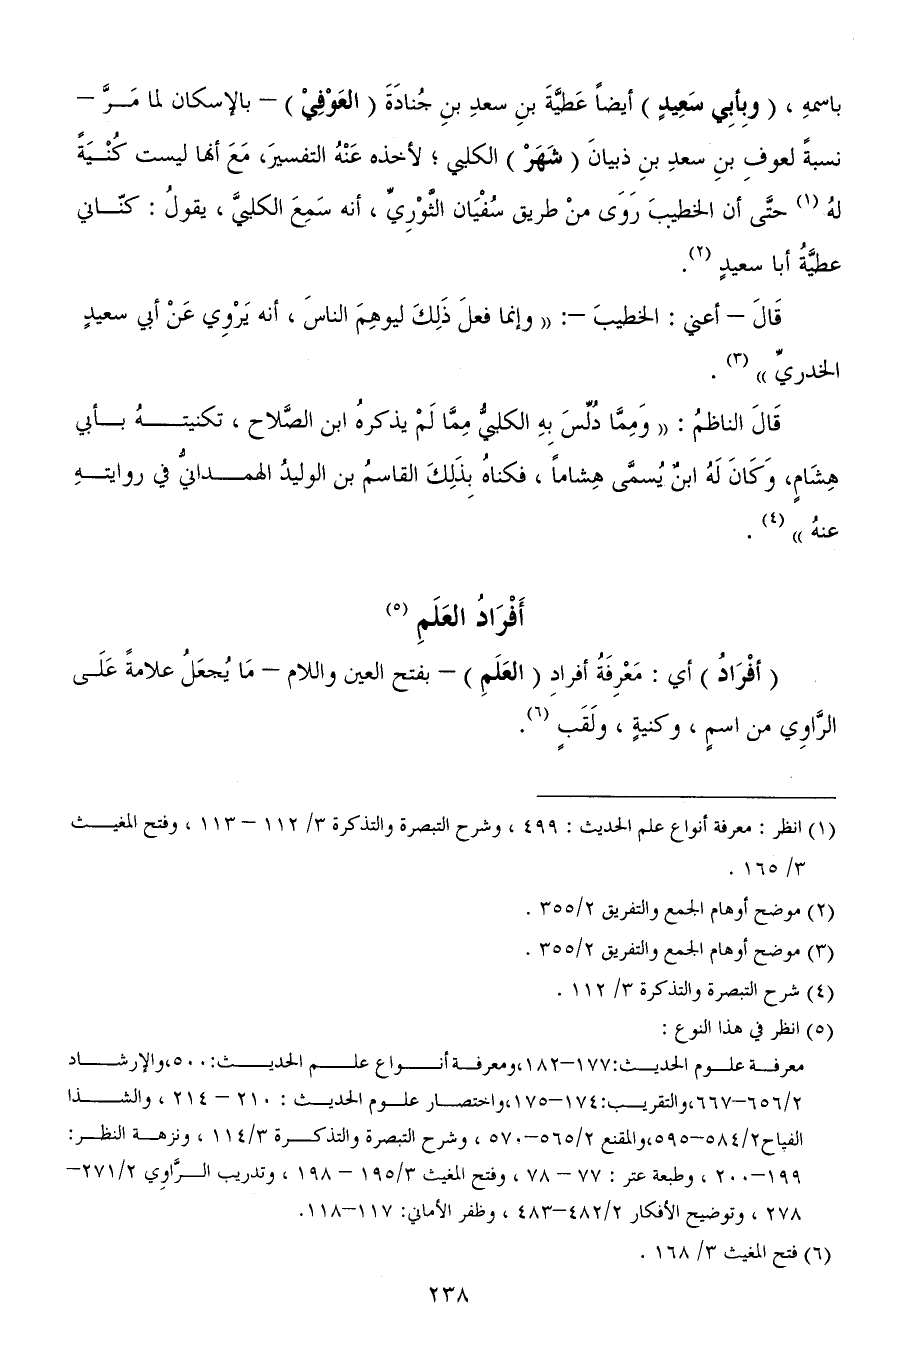 باسمهِ ، ( وبأبي سَعِيدٍ ) أيضاً عَطيَّةَ بنِ سعدِ بنِ جُنادَةَ ( العَوْفِيْ ) – بالإسكان لما مَـرَّ –
نسبةً لعوفِ بنِ سعدِ بنِ ذبيانَ ( شَهَرْ ) الكلبي ؛ لأخذه عَنْهُ التفسيرَ، مَعَ أنها ليست كُنْيَةً
لهُ (١) حتَّى أن الخطيبَ رَوَى منْ طريق سُفْيَان الثَّوْرِيِّ ، أنه سَمِعَ الكلبيَّ ، يقولُ : كنّـاني
عطيَّةُ أبا سعيدٍ (٢).
قَالَ – أعني : الخطيبَ –: (( وإنما فعلَ ذَلِكَ ليوهِمَ الناسَ ، أنه يَرْوِي عَنْ أبي سعيدٍ
الخدريِّ )) (٣) .
قَالَ الناظمُ : (( وَمِمَّا دُلِّسَ بِهِ الكلبيُّ مِمَّا لَمْ يذكرهُ ابن الصَّلاح ، تكنيتـــهُ بـأبي
هِشَامٍ، وَكَانَ لَهُ ابنٌ يُسمَّى هِشاماً ، فكناهُ بِذَلِكَ القاسمُ بن الوليدُ الهمـدانيُّ في روايتـهِ
عنهُ )) (٤) .
أَفْرَادُ العَلَمِ (٥)
( أفْرَادُ ) أي : مَعْرِفَةُ أفرادِ ( العَلَمِ ) – بفتح العين واللام – مَا يُجعَلُ علامةً عَلَـى
الرَّاوِي من اسمٍ ، وكنيةٍ ، ولَقَبٍ (٦).
(١) انظر : معرفة أنواع علم الحديث : ٤٩٩ ، وشرح التبصرة والتذكرة ٣/ ١١٢ – ١١٣ ، وفتح المغيـث
٣/ ١٦٥ .
(٢) موضح أوهام الجمع والتفريق ٢/ ٣٥٥ .
(٣) موضح أوهام الجمع والتفريق ٢/ ٣٥٥ .
(٤) شرح التبصرة والتذكرة ٣/ ١١٢ .
(٥) انظر في هذا النوع :
معرفـة علـوم الحديـث:١٧٧–١٨٢،ومعرفـة أنـواع علـم الحديـث:٥٠٠،والإرشـاد
٢/ ٦٥٦–٦٦٧،والتقريـب:١٧٤–١٧٥،واختصـار علـوم الحديـث : ٢١٠ – ٢١٤ ، والشـذا
الفياح٢/ ٥٨٤–٥٩٥،والمقنع ٢/ ٥٦٥–٥٧٠ ، وشرح التبصرة والتذكـرة ٣/ ١١٤ ، ونزهـة النظـر:
١٩٩–٢٠٠ ، وطبعة عتر : ٧٧ – ٧٨ ، وفتح المغيث ٣/ ١٩٥ – ١٩٨ ، وتدريب الـرَّاوِي ٢/ ٢٧١–
٢٧٨ ، وتوضيح الأفكار ٢/ ٤٨٢–٤٨٣ ، وظفر الأماني: ١١٧–١١٨.
(٦) فتح المغيث ٣/ ١٦٨ .
٢٣٨